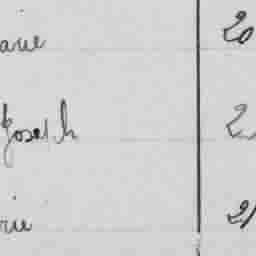 arie 20
Joseph 2
rie 21